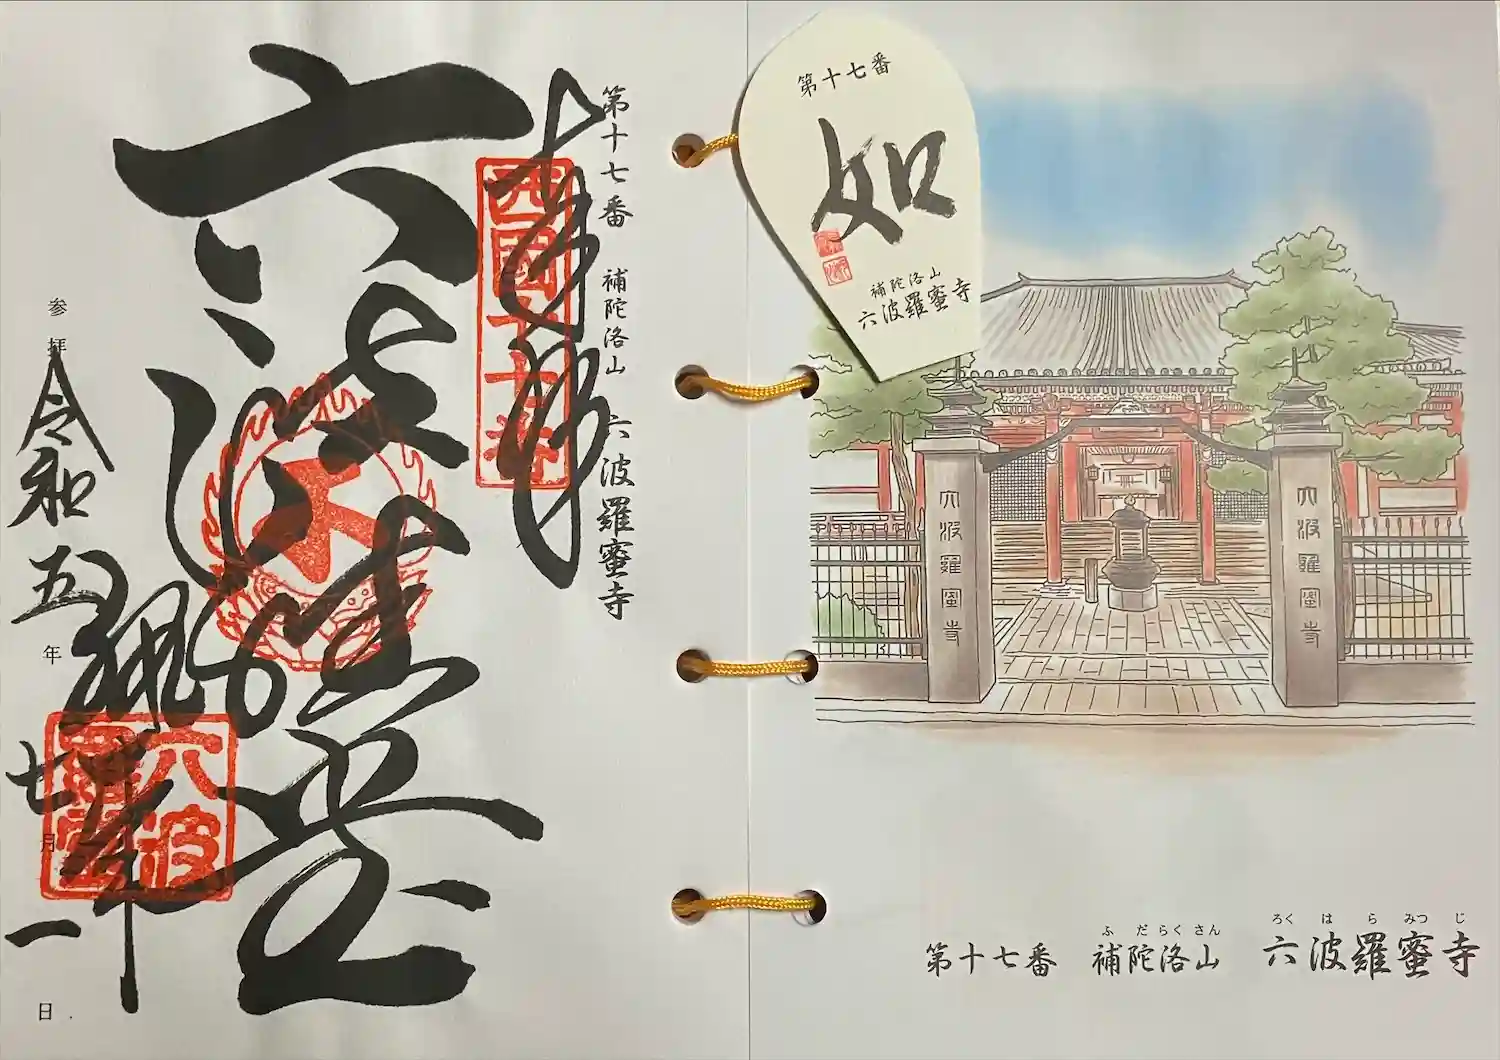 第十七番　補陀洛山　六波羅蜜寺
西國十七番
六波羅堂
六波羅蜜
参拝 令和五年七月一日
第十七番
如
補陀洛山
六波羅蜜寺
六波羅蜜寺
六波羅蜜寺
第十七番　補陀洛山　六波羅蜜寺
ふだらくさん　ろくはらみつじ